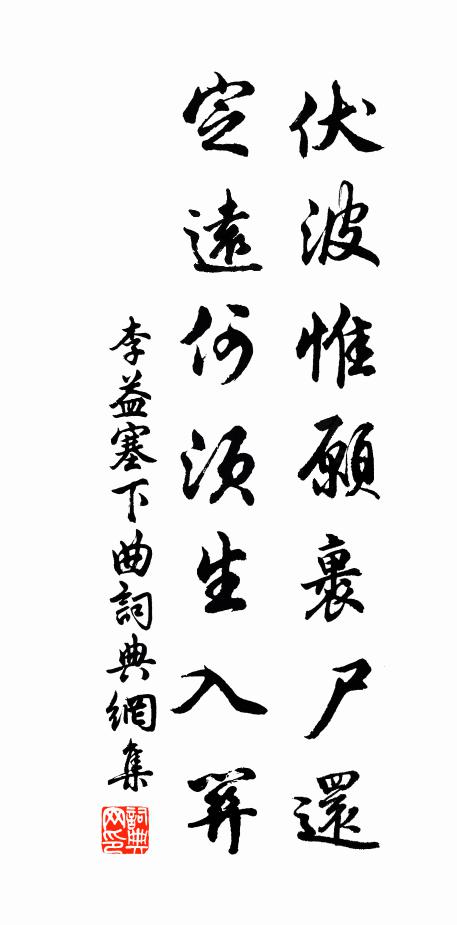 伏波惟願裹尸還
定遠何須生入關
李益塞下曲詞典網集
詞典網印